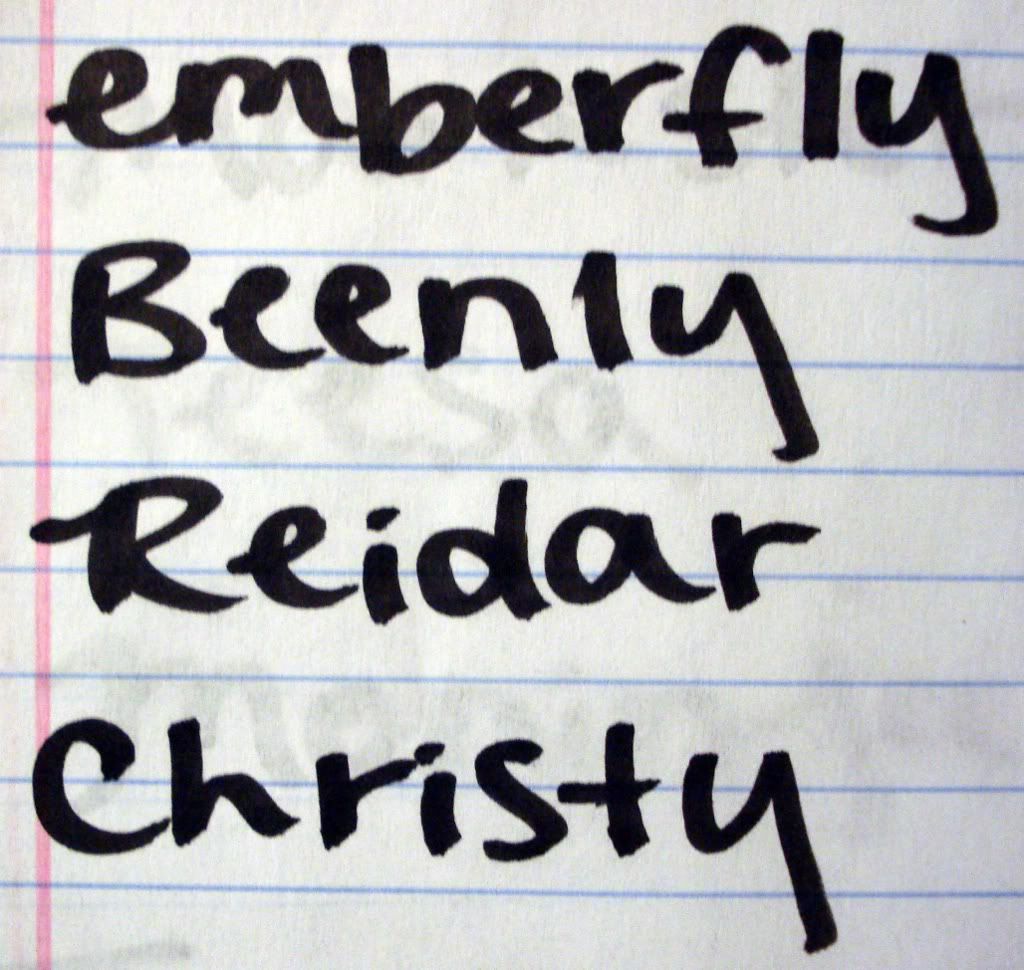 emberfly
Beenly
Reidar
Christy